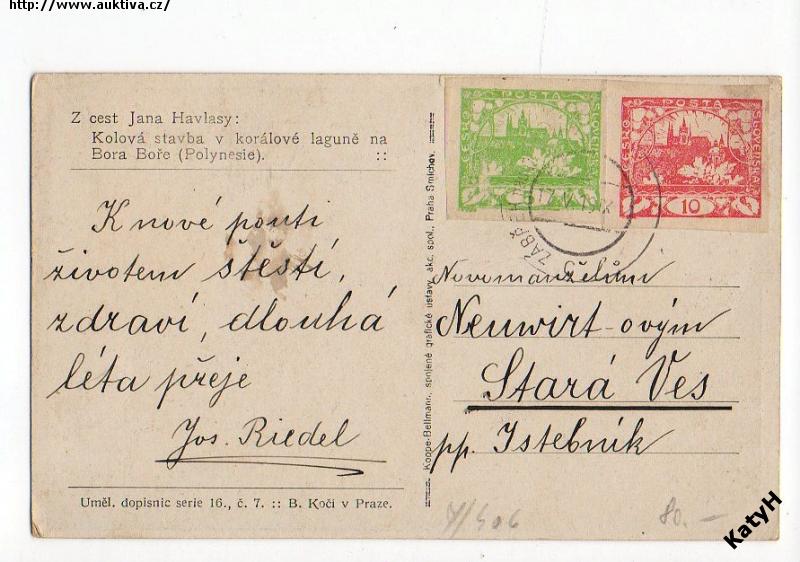 http://www.auktiva.cz/
Z cest Jana Havlasy:
Kolová stavba v korálové laguně na
Bora Boře (Polynesie). ::
K nové pouti
životem štěstí,
zdraví, dlouhá
léta přeje
Jos. Riedel
Uměl. dopisnic serie 16., č. 7. :: B. Kočí v Praze.
Koppe-Bellmann, spojené grafické ústavy, akc. spol., Praha Smíchov.
POŠTA
ČESKO
SLOVENSKÁ
POŠTA
ČESKO
SLOVENSKÁ
10
Novomanželům
Neuwirt-ovým
Stará Ves
pp. Istebník
80.-
KatyH